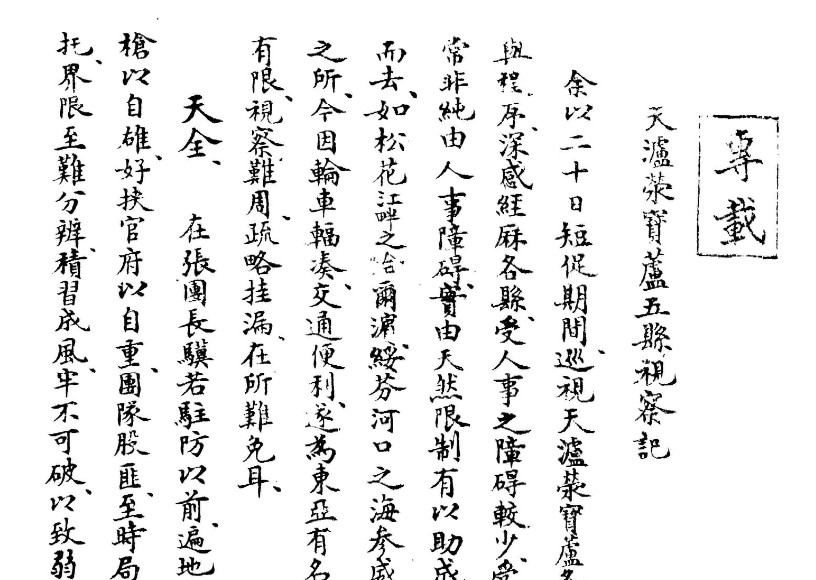 專載
天瀘滎寶蘆五縣視察記
余以二十日短促期間、巡視天瀘滎寶蘆各
與程序、深感經厤各縣、受人事之障碍較少、受
常非純由人事障碍、實由天然限制有以助成
而去、如松花江畔之哈爾濱、綏芬河口之海參威
之所、今因輪車輻湊、交通便利、遂為東亞有名
有限、視察難周、疏略挂漏、在所難免耳、
天全、 在張團長驥若駐防以前、遍地
槍以自雄、好挾官府以自重、團隊股匪、至時局
托、界限至難分辦、積習成風、牢不可破、以致弱